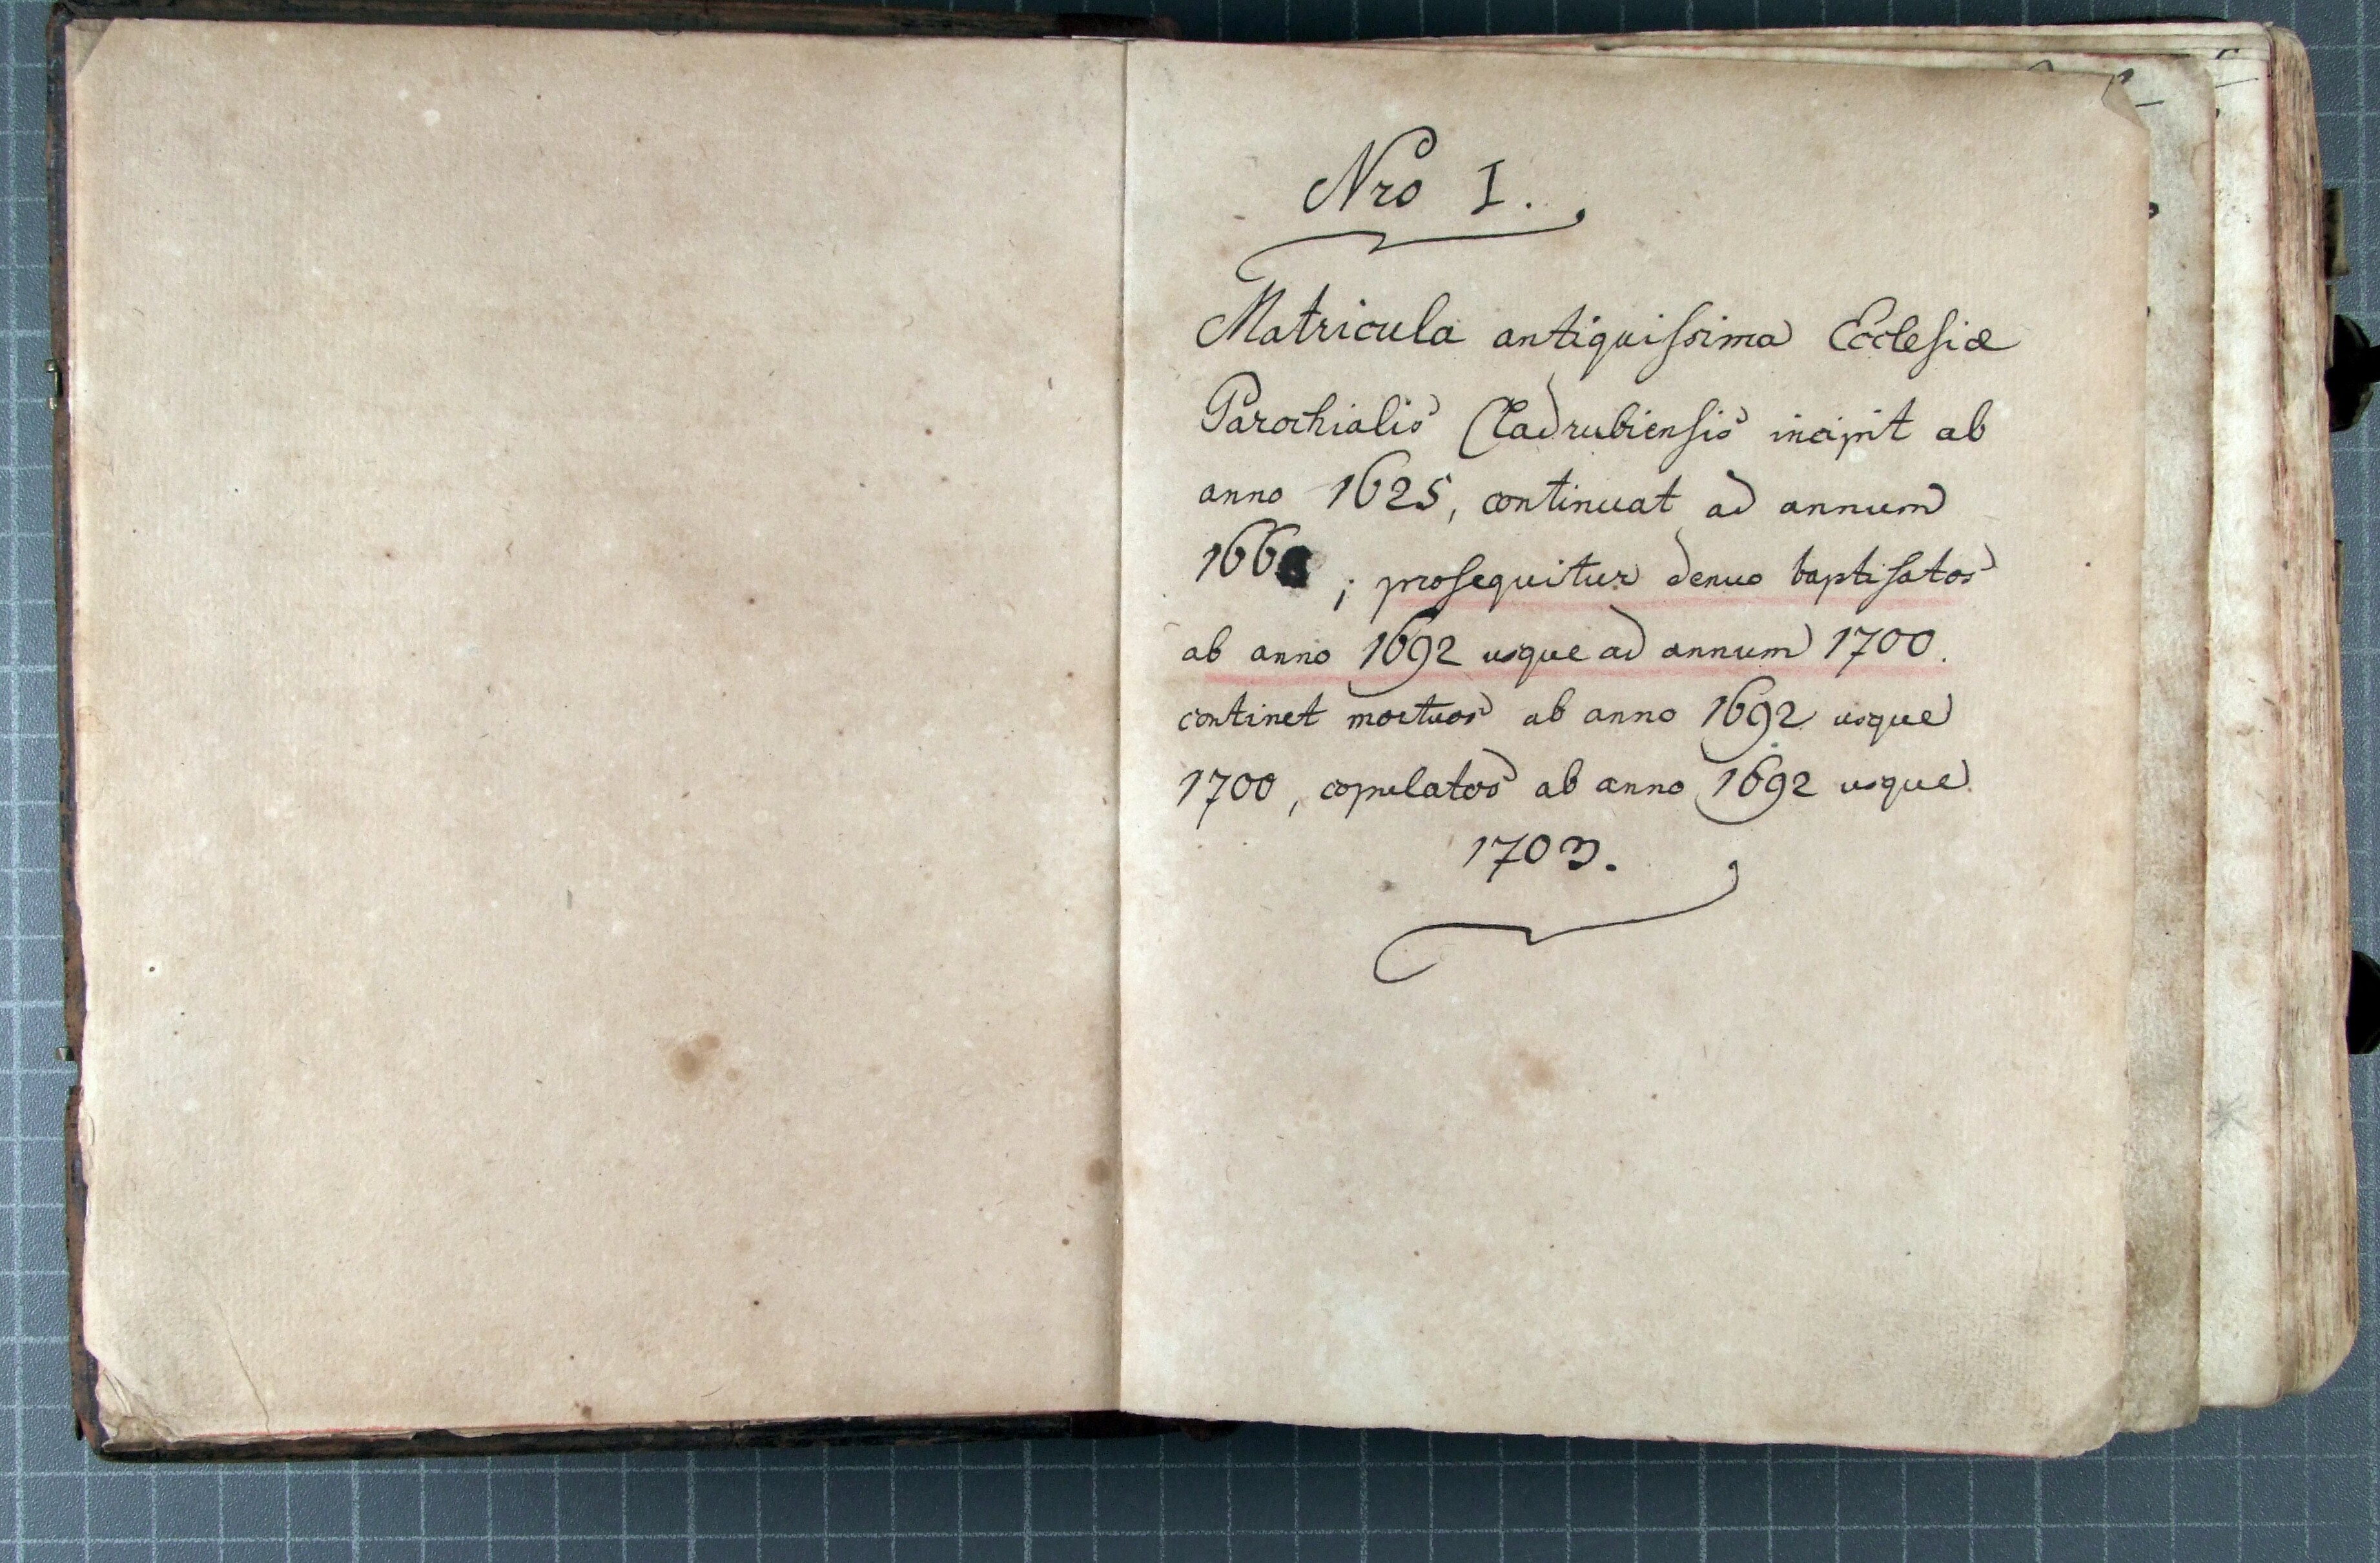 Nro I.
Matricula antiquissima Ecclesiæ
Parochialis Cladrubiensis incipit ab
anno 1625, continuat ad annum
166 ; prosequitur denuo baptisatos
ab anno 1692 usque ad annum 1700.
continet mortuos ab anno 1692 usque
1700, copulatos ab anno 1692 usque
1703.